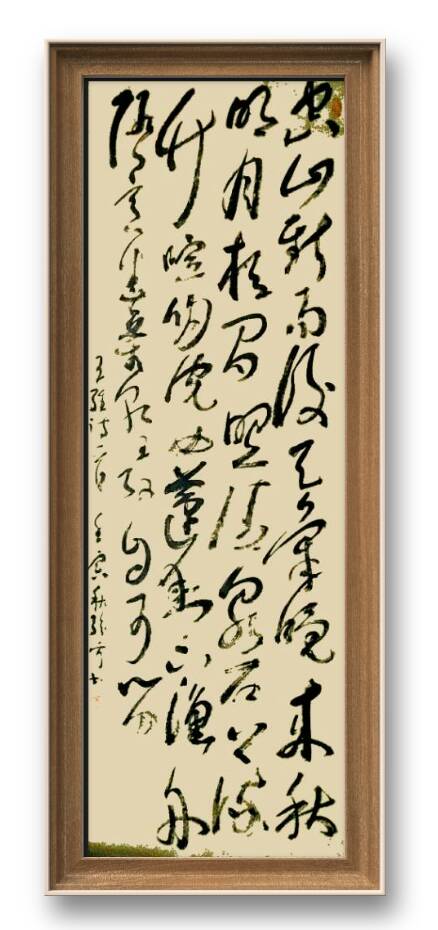 空山新雨後天氣晚來秋
明月松間照清泉石上流
竹喧歸浣女蓮動下漁舟
隨意春芳歇王孫自可留
王維詩一首 壬寅秋 書